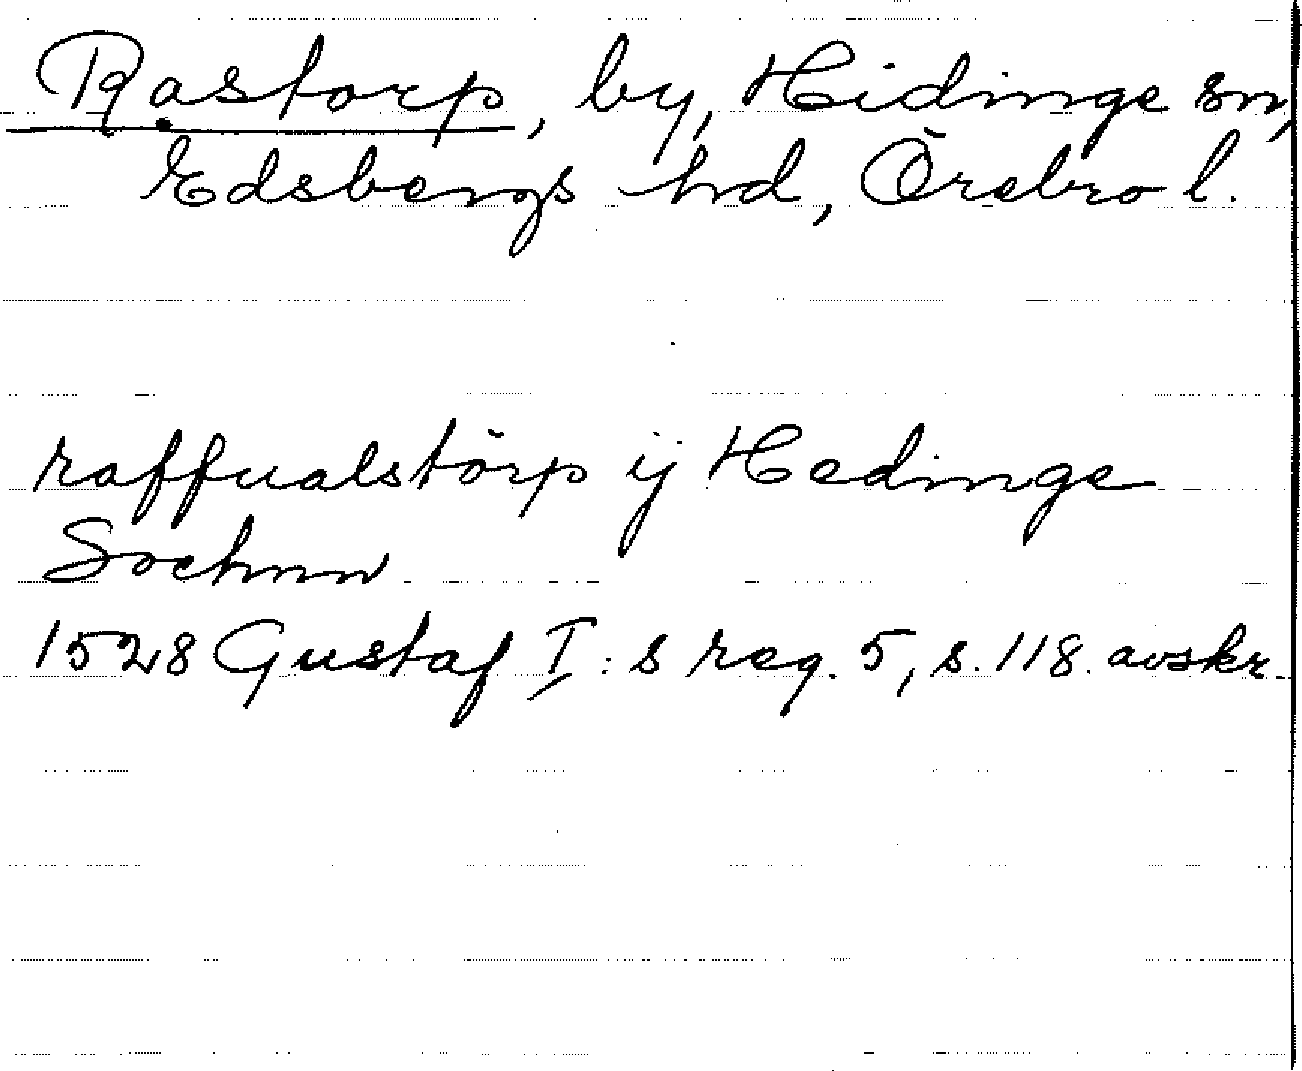 Rastorp, by, Hidinge sn,
Edsbergs hd, Örebro l.
raffualstörp ij Hedinge
Sochnn
1528 Gustaf I:s reg. 5, s. 118. avskr.